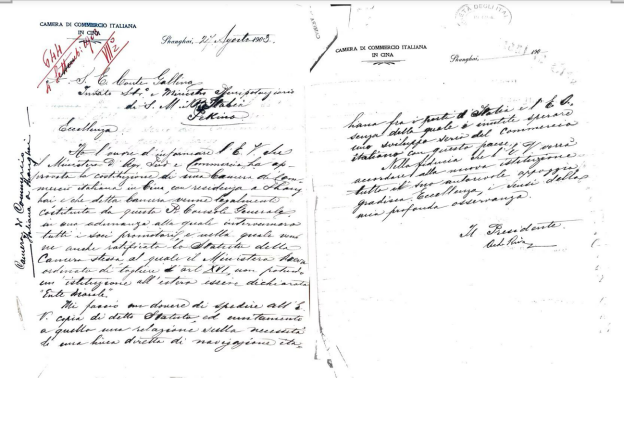 CAMERA DI COMMERCIO ITALIANA
IN CINA
Shanghai, 27 Agosto 1903.
644
S. E. Conte Gallina
Inviato Str.° e Ministro Plenipotenziario
di S. M. il Re d'Italia
Pekino
Camera di Commercio
Italiana a Shanghai
Eccellenza,
Ho l'onore d'informare l'E. V. che
il Ministero d'Agr. Ind. e Commercio ha ap-
provato la costituzione di una Camera di Com-
mercio italiana in Cina con residenza a Shang-
hai e che della Camera venne legalmente
costituita da questo R. Console Generale
in una adunanza alla quale intervennero
tutti i soci promotori e nella quale ven-
ne anche ratificato lo Statuto della
Camera stessa al quale il Ministero aveva
ordinato di togliere l'art XVI, non potendo
un'istituzione all'estero essere dichiarata
"Ente Morale".
Mi faccio un dovere di spedire all'E.
V. copia di detto Statuto, ed unitamente
a quello una relazione sulla necessità
di una linea diretta di navigazione ita-
CAMERA DI COMMERCIO ITALIANA
IN CINA
Shanghai, 190
liana fra i porti d'Italia e l'E. O.
senza della quale è inutile sperare
uno sviluppo serio del Commercio
italiano con questo paese.
Nella fiducia che l'E. V. vorrà
accordare alla nuova istituzione
tutto il suo autorevole appoggio,
gradisca Eccellenza, i sensi della
mia profonda osservanza.
Il Presidente